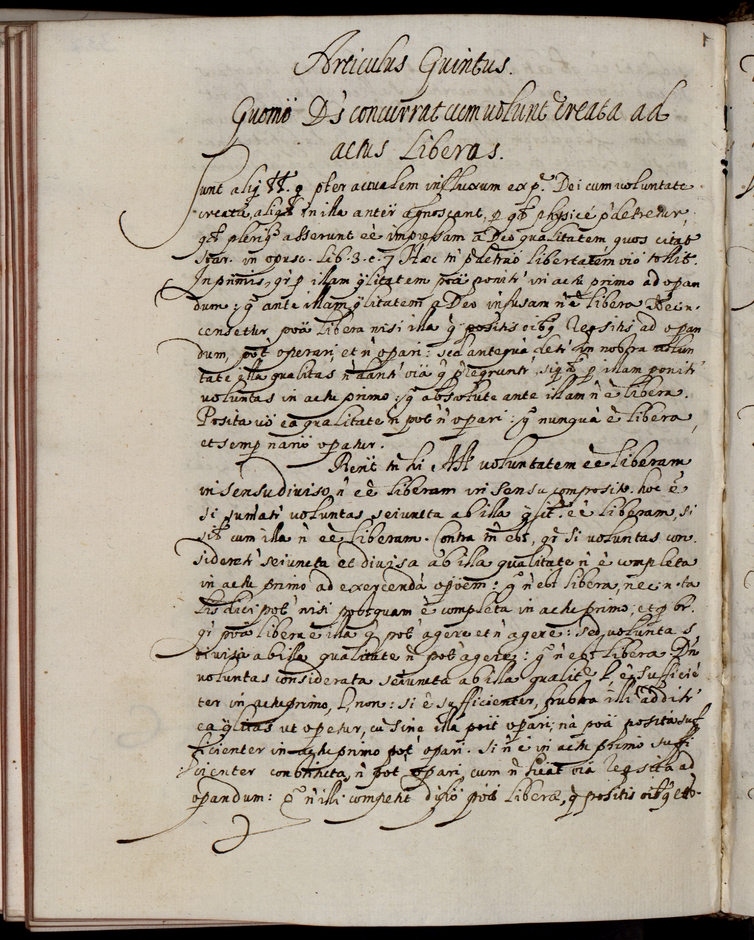 Articulus Quintus.
Quomō Ds̄ concurrat cum volunt̄e creata ad
actus Liberos.
Sunt aliqꝫ TT. q̄ p̄ter actualem influxum ex p.e Dei cum voluntate
creata, aliqd̄ in illa anterī agnoscant, p qd̄ physicè p̄detretur,
qd̄ pleriqꝫ asserunt eē impressam a Deo qualitatem quos citat
Suar. in opusc. Lib. 3. c. 7 Hæc tn̄ p̄detrāō libertatem oīō tollit.
In primis, qr̄ p illam q̄litatem pōa ponitr̄ in actu primo ad opan
dum: gͦ ante illam q̄litatem a Deo infusam n̄ ē libera
censetur poā libera nisi illa q̄ positis oibꝫ reqsitis ad opan
dum, pōt operari et n̄ opari: sed antequā detr̄ in nostra volun
tate illa qualitas n̄ dantr̄ oīa q̄ p̄regruntr̄, siqd̄ p illam ponitr̄
voluntas in actu primo: gͦ absolute ante illam n̄ ē libera.
Posita vō ea qualitate n̄ pot n̄ opari: gͦ nunquā ē libera,
et semp nariō opatur.
Rent̄ tn̄ hi AA voluntatem eē liberam
in sensu diviso, n̄ eē liberam in sensu composito. hoc ē
si sumatr̄ voluntas seiuncta ab illa q̄lit.e eē liberam, si
sit cum illa n̄ eē liberam. Contra tn̄ est, qr̄ si voluntas con
sideretr̄ seiuncta et divisa ab illa qualitate n̄ ē completa
in actu primo ad exercendā opōem: gͦ n̄ est libera, nec n. ta
lis dici pot nisi postquam ē completa in actu primo, et p br.
qr̄ poā libera ē illa q̄ pot agere et n̄ agere: sed voluntas
divisa ab illa qualitate n̄ pot agere: gͦ n̄ est libera Dn̄
voluntas considerata seiuncta ab illa qualit.e l, ē sufficiē
ter in actu primo, l, non: si ē sufficienter, frustra illi additr̄
ea q̄litas ut opetur, cū sine illa poīt opari; nā poā posita suf
ficienter in actu primo pot opari. Si n̄ ē in actu primo suffi
cienter constituta, n̄ pot opari, cum n̄ heat oīa reqsita ad
opandum: gͦ n̄ illi competit diffiō poæ liberæ, q̄ positis oibꝫ etc.